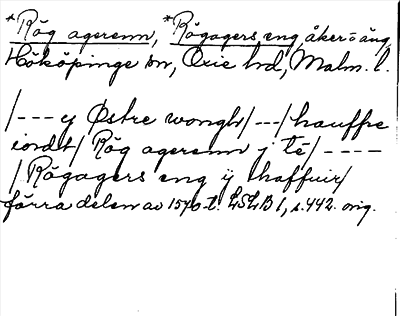 *Råg agerenn, *Rågagers eng, åker o äng,
Hököpinge sn, Oxie hd, Malm. l.
/--- y Østre wongh/---/hauffre
iordt/ Råg agerenn j tē/----
/Rågagers eng ij haffuir/
förra delen av 1570-t. LSLB 1, s. 442. orig.